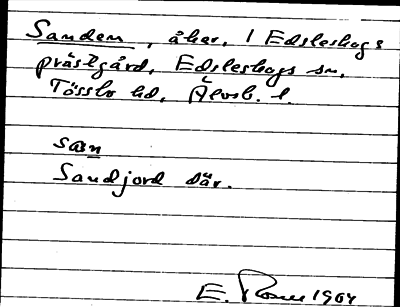 Sanden, åker, 1 Edsleskogs
prästgård, Edsleskogs sn,
Tössbo hd, Älvsb. l.
san
Sandjord där.
E. 1964